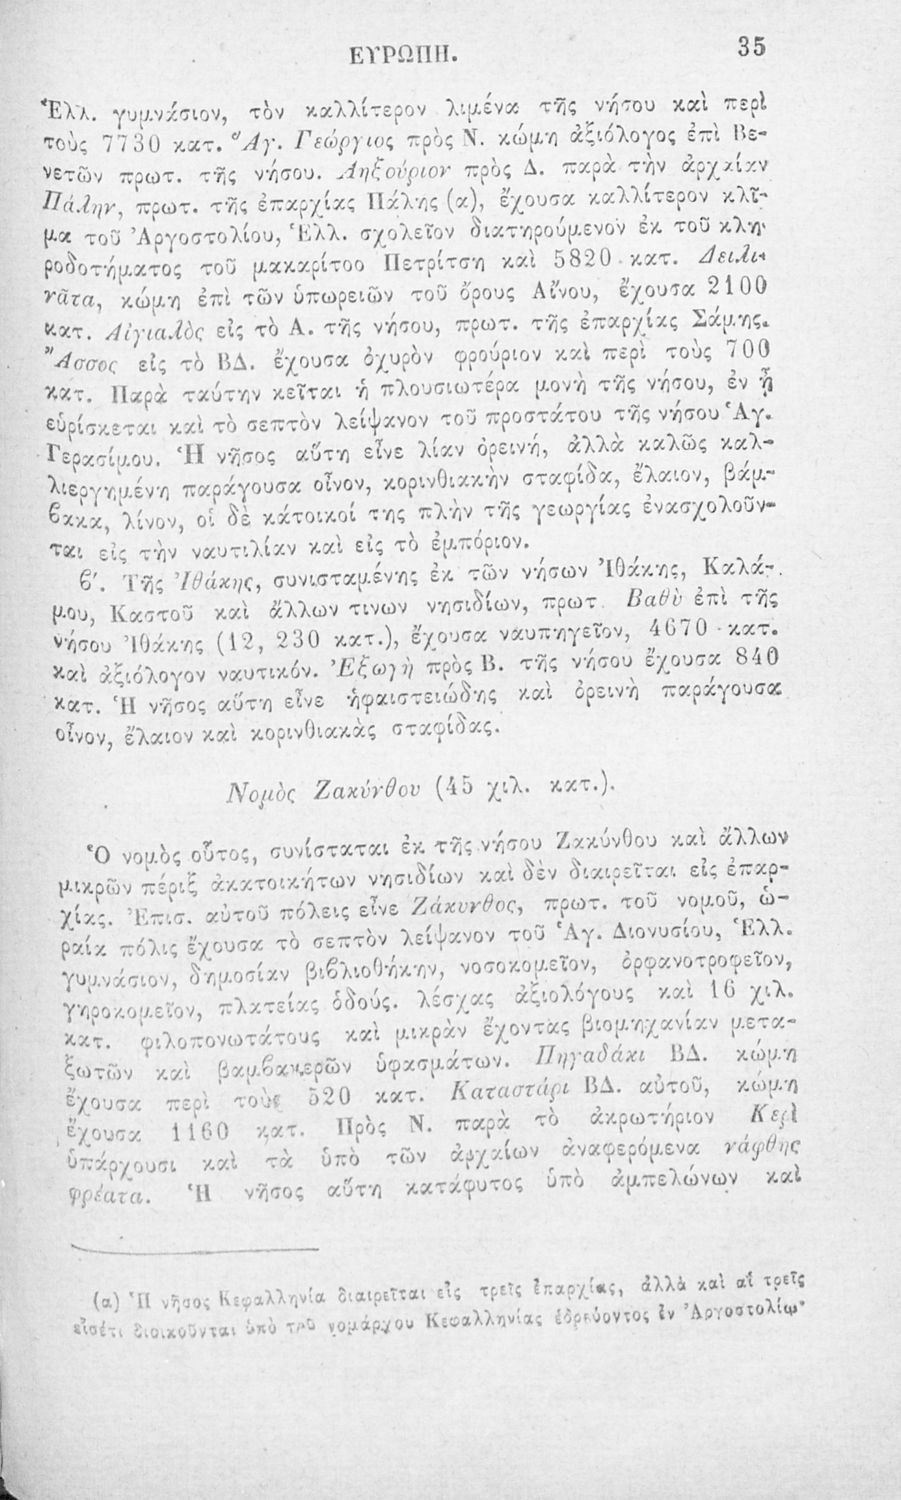 ΕΥΡΩΠΗ.
35
Ἑλλ. γυμνάσιον, τὸν καλλίτερον λιμένα τῆς νήσου καὶ περὶ
τοὺς 7730 κατ. Ἅγ. Γεώργιος πρὸς Ν. κώμη ἀξιόλογος ἐπὶ Βε-
νετῶν πρωτ. τῆς νήσου. Ληξούριον πρὸς Δ. παρὰ τὴν ἀρχαίαν
Πάλην, πρωτ. τῆς ἐπαρχίας Πάλης (α), ἔχουσα καλλίτερον κλῖ-
μα τοῦ Ἀργοστολίου, Ἑλλ. σχολεῖον διατηρούμενον ἐκ τοῦ κλη-
ροδοτήματος τοῦ μακαρίτοο Πετρίτση καὶ 5820 κατ. Δειλι-
νᾶτα, κώμη ἐπὶ τῶν ὑπωρειῶν τοῦ ὄρους Αἴνου, ἔχουσα 2100
κατ. Αἰγιαλὸς εἰς τὸ Α. τῆς νήσου, πρωτ. τῆς ἐπαρχίας Σάμης.
Ἄσσος εἰς τὸ ΒΔ. ἔχουσα ὀχυρὸν φρούριον καὶ περὶ τοὺς 700
κατ. Παρὰ ταύτην κεῖται ἡ πλουσιωτέρα μονὴ τῆς νήσου, ἐν ᾗ
εὑρίσκεται καὶ τὸ σεπτὸν λείψανον τοῦ προστάτου τῆς νήσου Ἁγ.
Γερασίμου. Ἡ νῆσος αὕτη εἶνε λίαν ὀρεινή, ἀλλὰ καλῶς καλ-
λιεργημένη παράγουσα οἶνον, κορινθιακὴν σταφίδα, ἔλαιον, βάμ-
ϐακα, λίνον, οἱ δὲ κάτοικοί της πλὴν τῆς γεωργίας ἐνασχολοῦν-
ται εἰς τὴν ναυτιλίαν καὶ εἰς τὸ ἐμπόριον.
ϐ'. Τῆς Ἰθάκης, συνισταμένης ἐκ τῶν νήσων Ἰθάκης, Καλά-
μου, Καστοῦ καὶ ἄλλων τινων νησιδίων, πρωτ. Βαθὺ ἐπὶ τῆς
νήσου Ἰθάκης (12, 230 κατ.), ἔχουσα ναυπηγεῖον, 4670 κατ.
καὶ ἀξιόλογον ναυτικόν. Ἐξωγὴ πρὸς Β. τῆς νήσου ἔχουσα 840
κατ. Ἡ νῆσος αὕτη εἶνε ἡφαιστειώδης καὶ ὀρεινὴ παράγουσα
οἶνον, ἔλαιον καὶ κορινθιακὰς σταφίδας.
Νομὸς Ζακύνθου (45 χιλ. κατ.).
Ὁ νομὸς οὗτος, συνίσταται ἐκ τῆς νήσου Ζακύνθου καὶ ἄλλων
μικρῶν πέριξ ἀκατοικήτων νησιδίων καὶ δὲν διαιρεῖται εἰς ἐπαρ-
χίας. Ἐπισ. αὐτοῦ πόλεις εἶνε Ζάκυνθος, πρωτ. τοῦ νομοῦ, ὡ-
ραία πόλις ἔχουσα τὸ σεπτὸν λείψανον τοῦ Ἁγ. Διονυσίου, Ἑλλ.
γυμνάσιον, δημοσίαν βιϐλιοθήκην, νοσοκομεῖον, ὀρφανοτροφεῖον,
γηροκομεῖον, πλατείας ὁδούς, λέσχας ἀξιολόγους καὶ 16 χιλ.
κατ. φιλοπονωτάτους καὶ μικρὰν ἔχοντας βιομηχανίαν μετα-
ξωτῶν καὶ βαμϐακερῶν ὑφασμάτων. Πηγαδάκι ΒΔ. κώμη
ἔχουσα περὶ τοὺς 520 κατ. Καταστάρι ΒΔ. αὐτοῦ, κώμη
ἔχουσα 1160 κατ. Πρὸς Ν. παρὰ τὸ ἀκρωτήριον Κερὶ
ὑπάρχουσι καὶ τὰ ὑπὸ τῶν ἀρχαίων ἀναφερόμενα νάφθης
φρέατα. Ἡ νῆσος αὕτη κατάφυτος ὑπὸ ἀμπελώνων καὶ
(α) Ἡ νῆσος Κεφαλληνία διαιρεῖται εἰς τρεῖς ἐπαρχίας, ἀλλὰ καὶ αἱ τρεῖς
εἰσέτι διοικοῦνται ὑπὸ τοῦ νομάρχου Κεφαλληνίας ἑδρεύοντος ἐν Ἀργοστολίῳ·